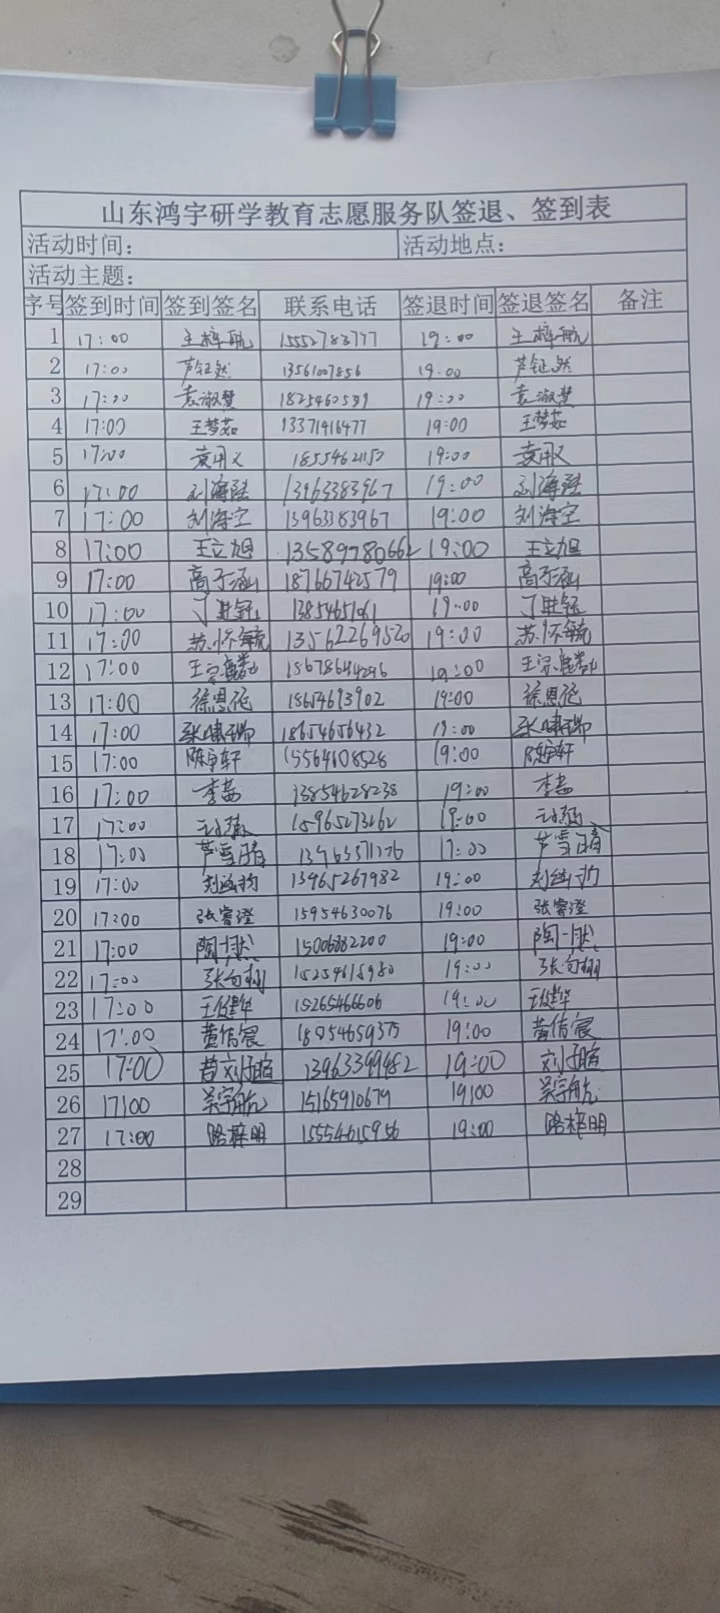 山东鸿宇研学教育志愿服务队签退、签到表
活动时间: 活动地点:
活动主题:
序号 签到时间 签到签名 联系电话 签退时间 签退签名 备注
1 17:00 王梓航 15552783777 19:00 王梓航
2 17:00 芦钲然 13561007856 19:00 芦钲然
3 17:00 袁淑慧 19:00 袁淑慧
4 17:00 王梦茹 13371416477 19:00 王梦茹
5 17:00 19:00
6 17:00 13963383967 19:00
7 17:00 刘海空 13963383967 19:00 刘海空
8 17:00 王立旭 13589980662 19:00 王立旭
9 17:00 高子涵 18766742579 19:00 高子涵
10 17:00 19:00
11 17:00 苏怀毓 13562269520 19:00 苏怀毓
12 17:00 18678644296 19:00
13 17:00 徐恩 18654693902 19:00 徐恩
14 17:00 张啸瑞 18654656432 19:00 张啸瑞
15 17:00 陈宇轩 15564608528 19:00 陈宇轩
16 17:00 13854628238 19:00
17 17:00 15965273262 19:00
18 17:00 芦雪晴 17:00 芦雪晴
19 17:00 13965267982 19:00
20 17:00 张睿澄 15954630076 19:00 张睿澄
21 17:00 陶一然 15006382200 19:00 陶一然
22 17:00 15254615980 19:00
23 17:00 王健华 15265466606 19:00 王健华
24 17:00 黄信宸 18854659375 19:00 黄信宸
25 17:00 13963399482 19:00
26 17:00 吴宇航 15165910679 19:00 吴宇航
27 17:00 路梓明 15554615956 19:00 路梓明
28
29